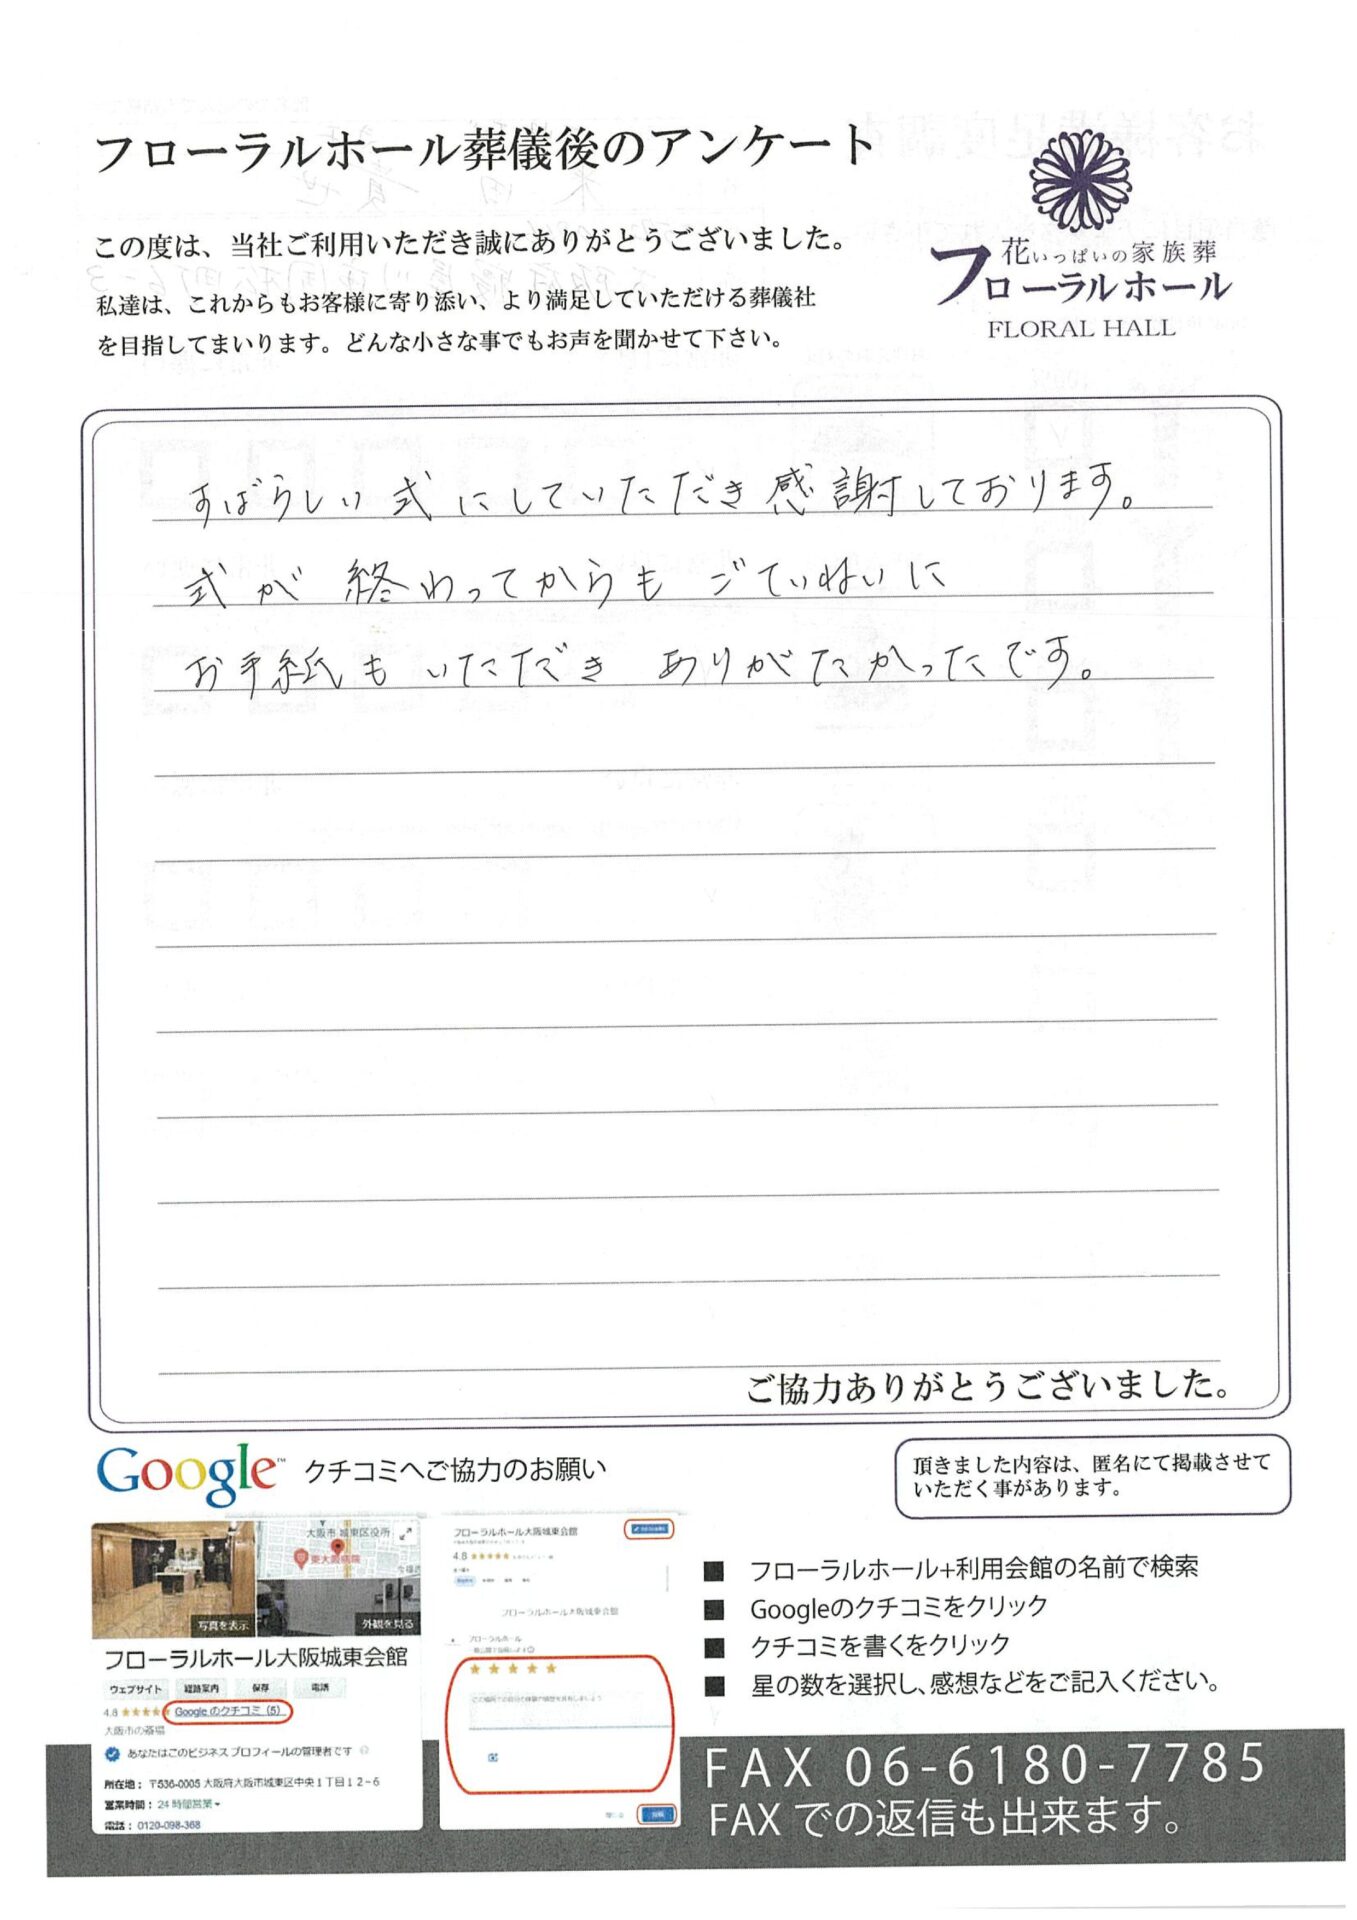 フローラルホール葬儀後のアンケート
この度は、当社ご利用いただき誠にありがとうございました。
私達は、これからもお客様に寄り添い、より満足していただける葬儀社
を目指してまいります。どんな小さな事でもお声を聞かせて下さい。
花いっぱいの家族葬
フローラルホール
FLORAL HALL
すばらしい式にしていただき感謝しております。
式が終わってからもごていねいに
お手紙もいただきありがたかったです。
ご協力ありがとうございました。
Google™ クチコミへご協力のお願い
頂きました内容は、匿名にて掲載させて
いただく事があります。
大阪市 城東区役所
東大阪病院
写真を表示
外観を見る
フローラルホール大阪城東会館
ウェブサイト 経路案内 保存 電話
4.8 ★★★★★ Google のクチコミ (5)
大阪市の斎場
あなたはこのビジネス プロフィールの管理者です
所在地： 〒536-0005 大阪府大阪市城東区中央１丁目１２−６
営業時間： 24 時間営業
電話： 0120-098-368
フローラルホール大阪城東会館
4.8 ★★★★★
フローラルホール大阪城東会館
フローラルホール
★★★★★
投稿
■ フローラルホール+利用会館の名前で検索
■ Googleのクチコミをクリック
■ クチコミを書くをクリック
■ 星の数を選択し、感想などをご記入ください。
FAX 06-6180-7785
FAX での返信も出来ます。